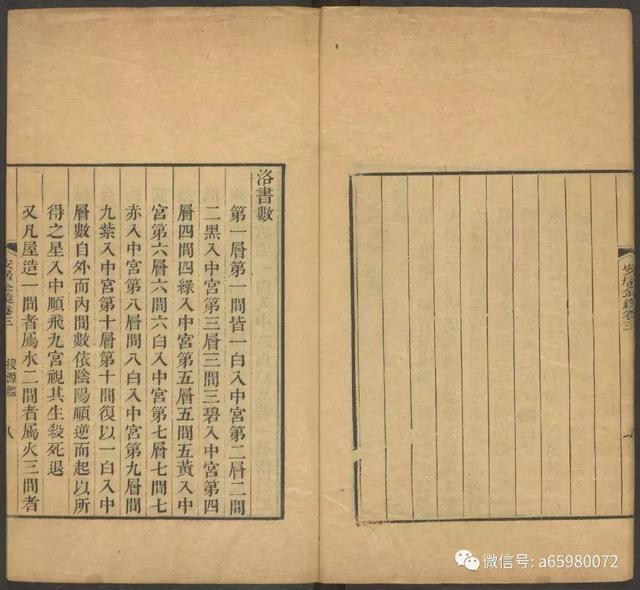 安居金鏡卷三
洛書數
第一層第一間皆一白入中宮第二層二間
二黑入中宮第三層三間三碧入中宮第四
層四間四綠入中宮第五層五間五黃入中
宮第六層六間六白入中宮第七層七間七
赤入中宮第八層間八白入中宮第九層間
九紫入中宮第十層第十間復以一白入中
層數自外而內間數依陰陽順逆而起以所
得之星入中順飛九宮視其生殺死退
又凡屋造一間者屬水二間者屬火三間者
安居金鏡卷三 源鑑 八
微信号: a65980072